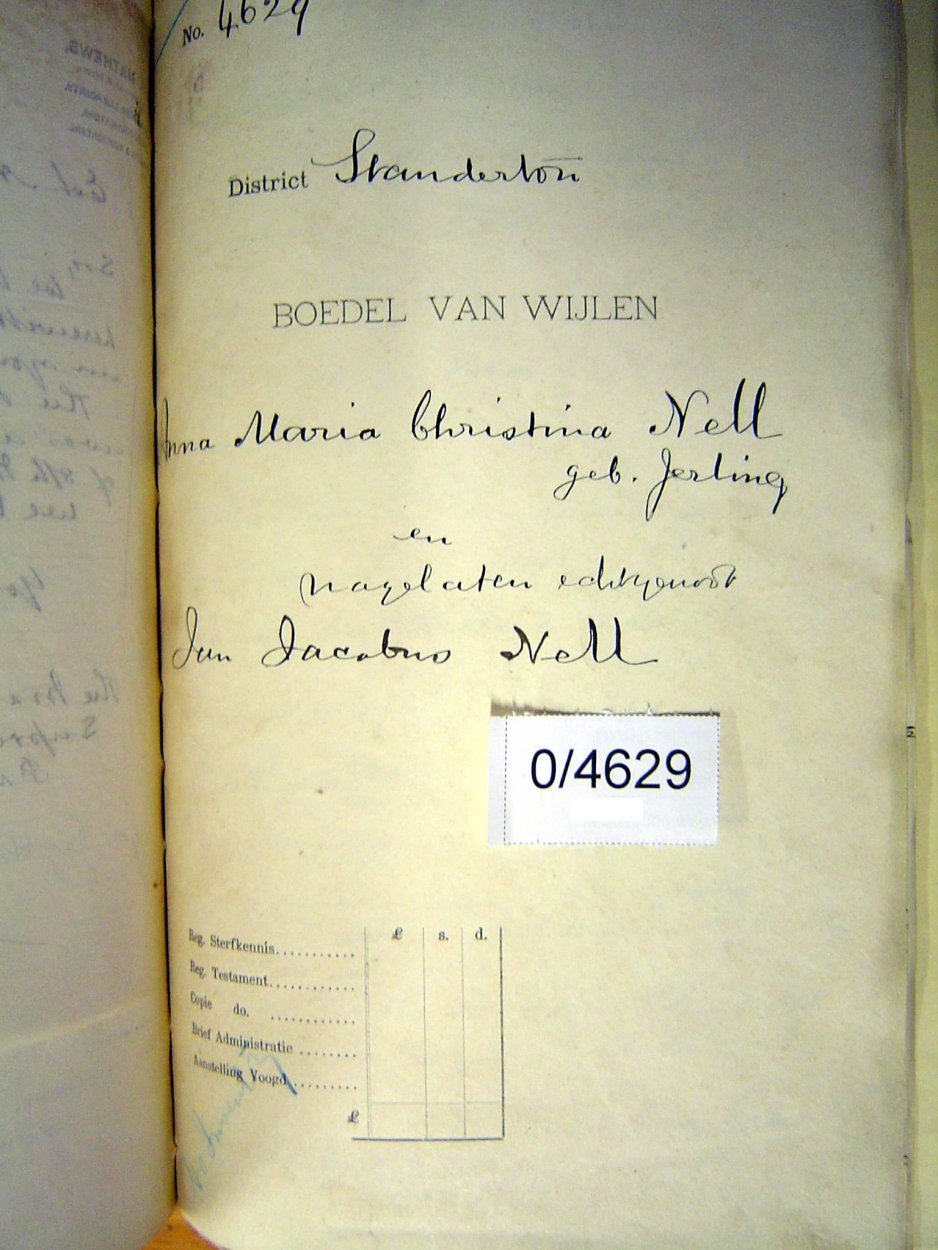 No. 4629
District Standerton
BOEDEL VAN WIJLEN
Anna Maria Christina Nell
geb. Jerling
en
nagelaten echtgenoot
Jan Jacobus Nell
0/4629
£ s. d.
Reg. Sterfkennis
Reg. Testament
Copie do.
Brief Administratie
Aanstelling Voogd
£